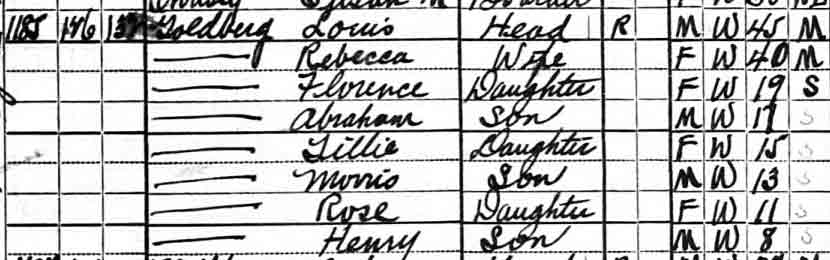 1185 176 137 Goldberg Louis Head R M W 45 M
Rebecca Wife F W 40 M
Florence Daughter F W 19 S
Abraham Son M W 17 S
Tillie Daughter F W 15 S
Morris Son M W 13 S
Rose Daughter F W 11 S
Henry Son M W 8 S